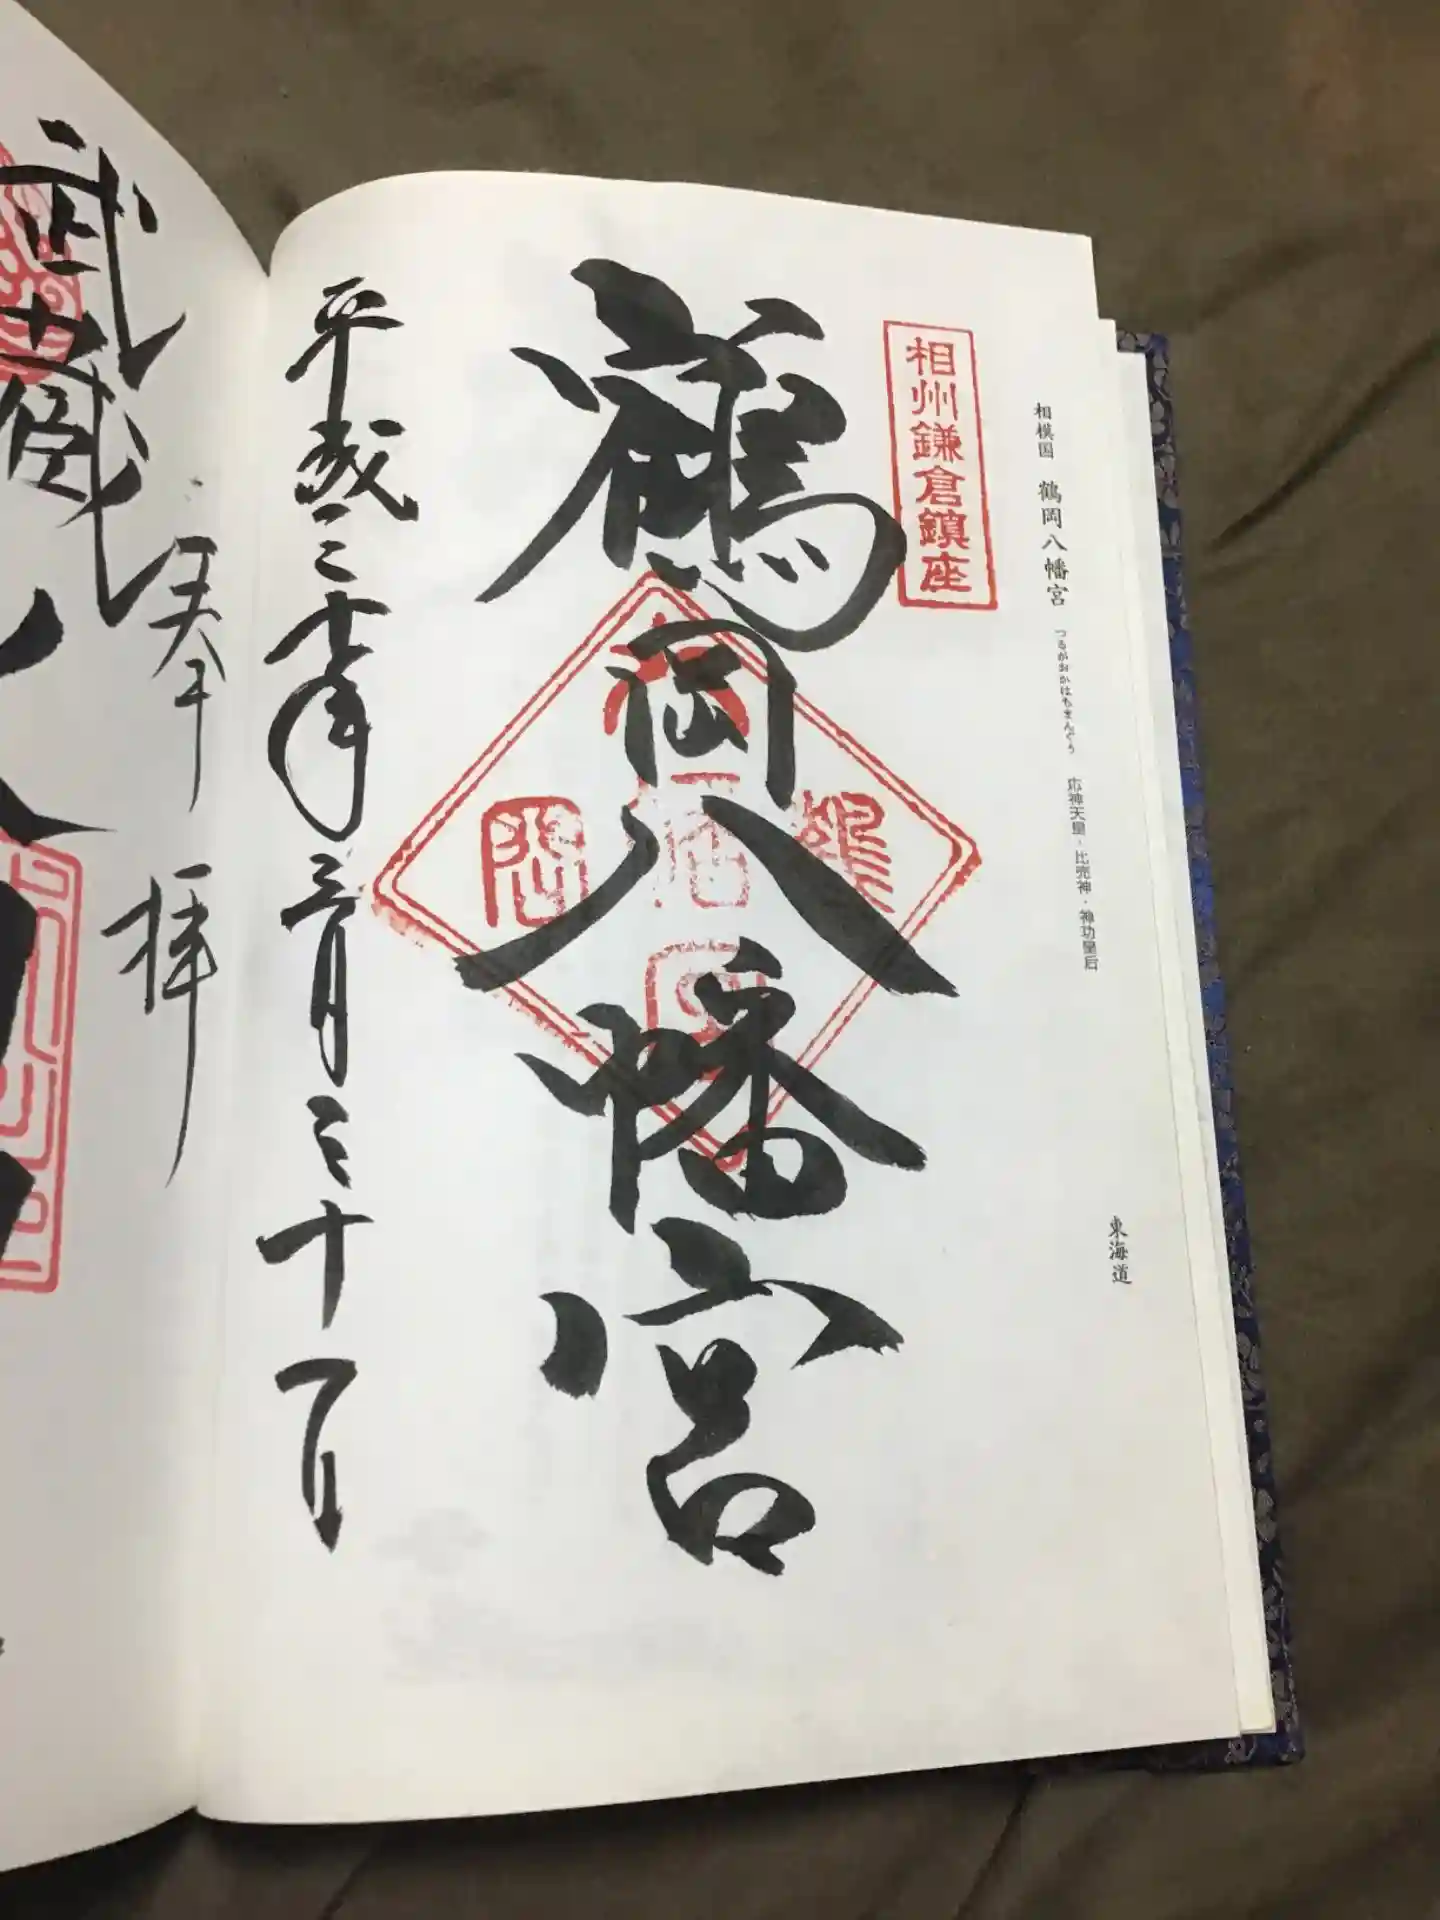 相模国 鶴岡八幡宮 つるがおかはちまんぐう 応神天皇・比売神・神功皇后
東海道
相州鎌倉鎮座
鶴岡八幡宮
平成三十年三月三十一日
奉拝
武蔵